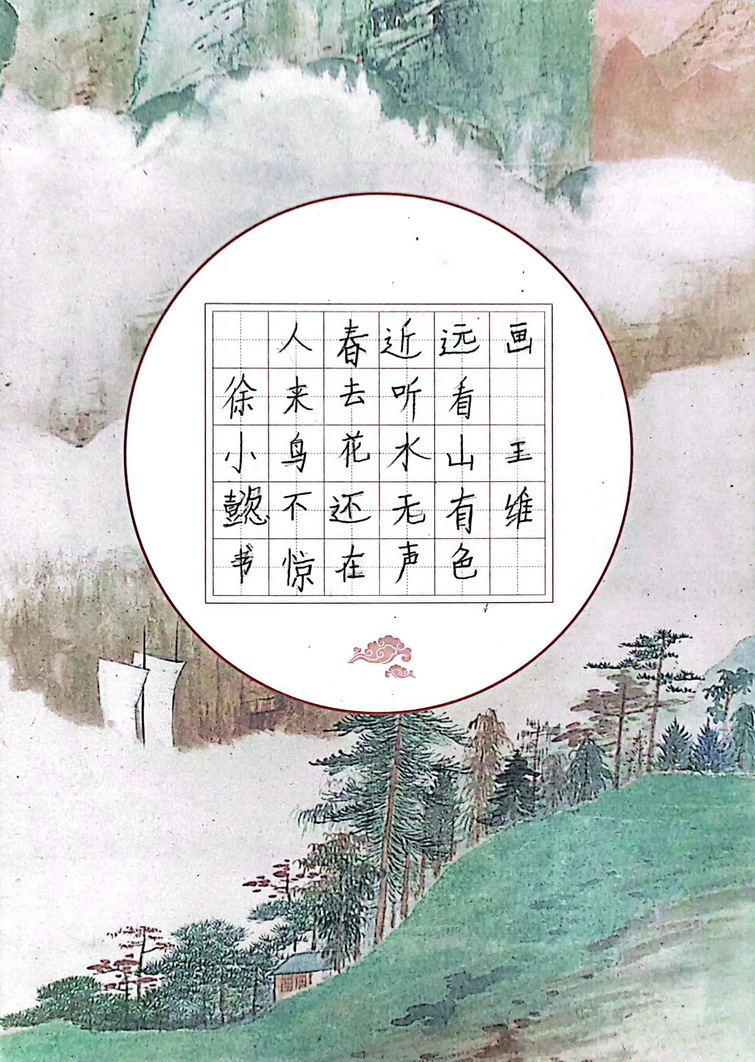 画 王维
远看山有色
近听水无声
春去花还在
人来鸟不惊
徐小懿书